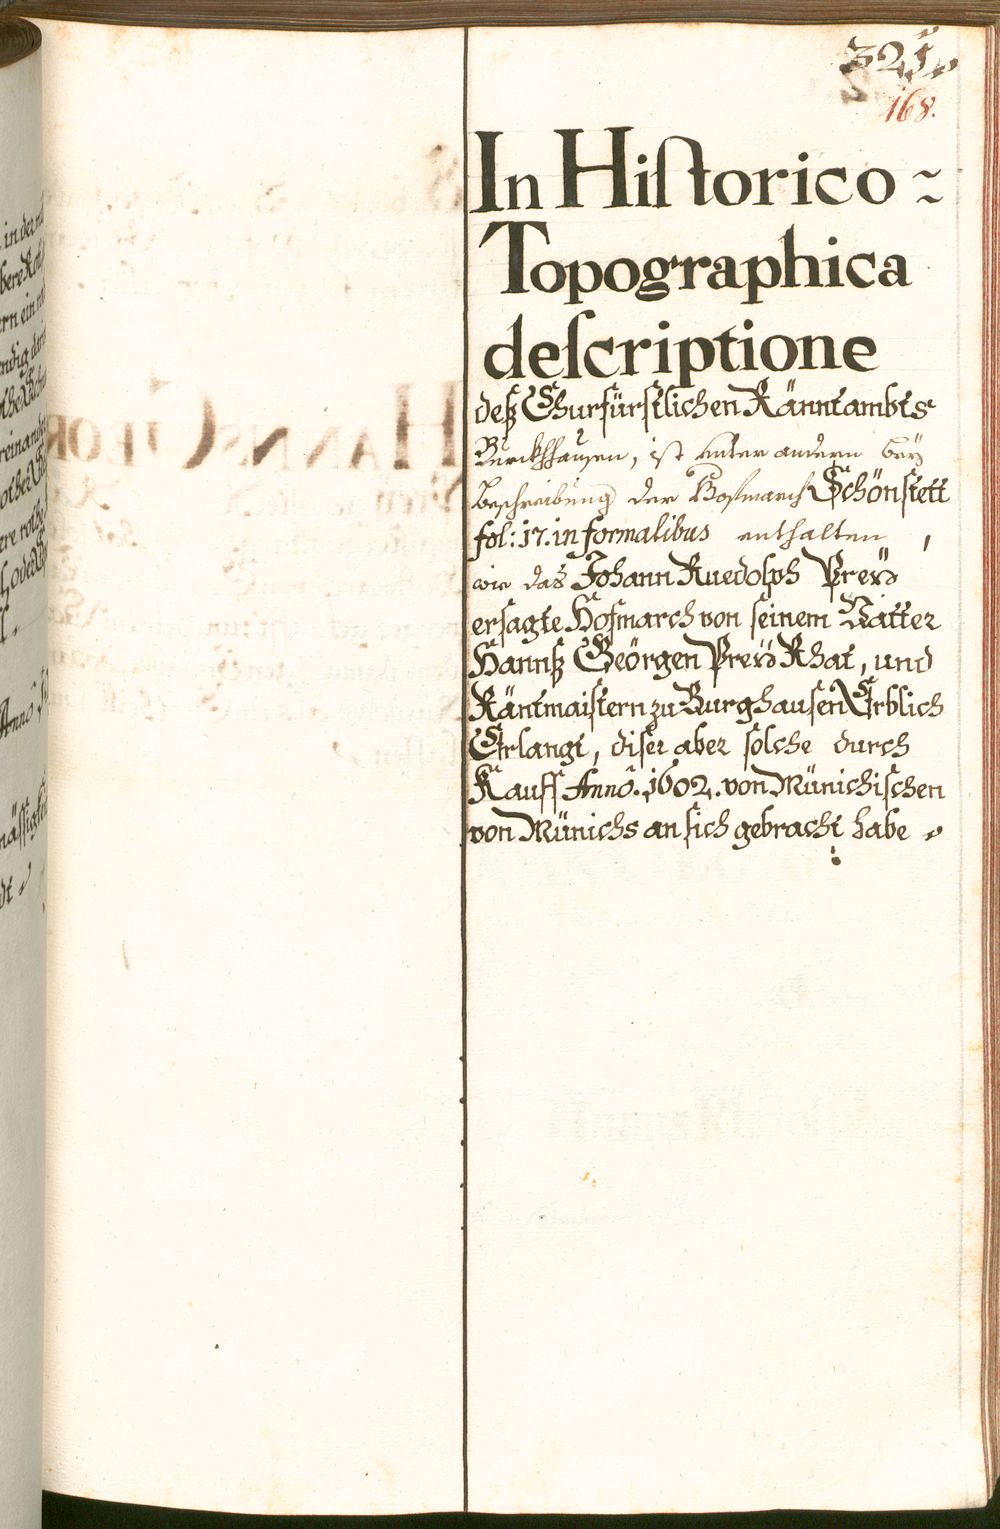 325
168.
In Hiſtorico ~
Topographica
deſcriptione
deß Churfürſtlichen Ränntambts
Burckhhausen, ist unter andern bey
beschreibung der Hofmarch Schönſtett
fol: 17. in formalibus enthalten,
wie das Johann Ruedolph Preÿ
erſagte Hofmarch von ſeinem Vätter
Hannß Geörgen Preÿ Rhat, und
Räntmaiſtern zu Burghauſen Erblich
Erlangt, diſer aber ſolche durch
Kauff Anno. 1602. von Münichiſchen
von Münichs an ſich gebracht habe